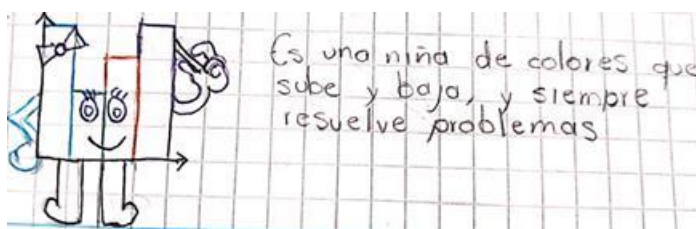 Es una niña de colores que
sube y baja, y siempre
resuelve problemas